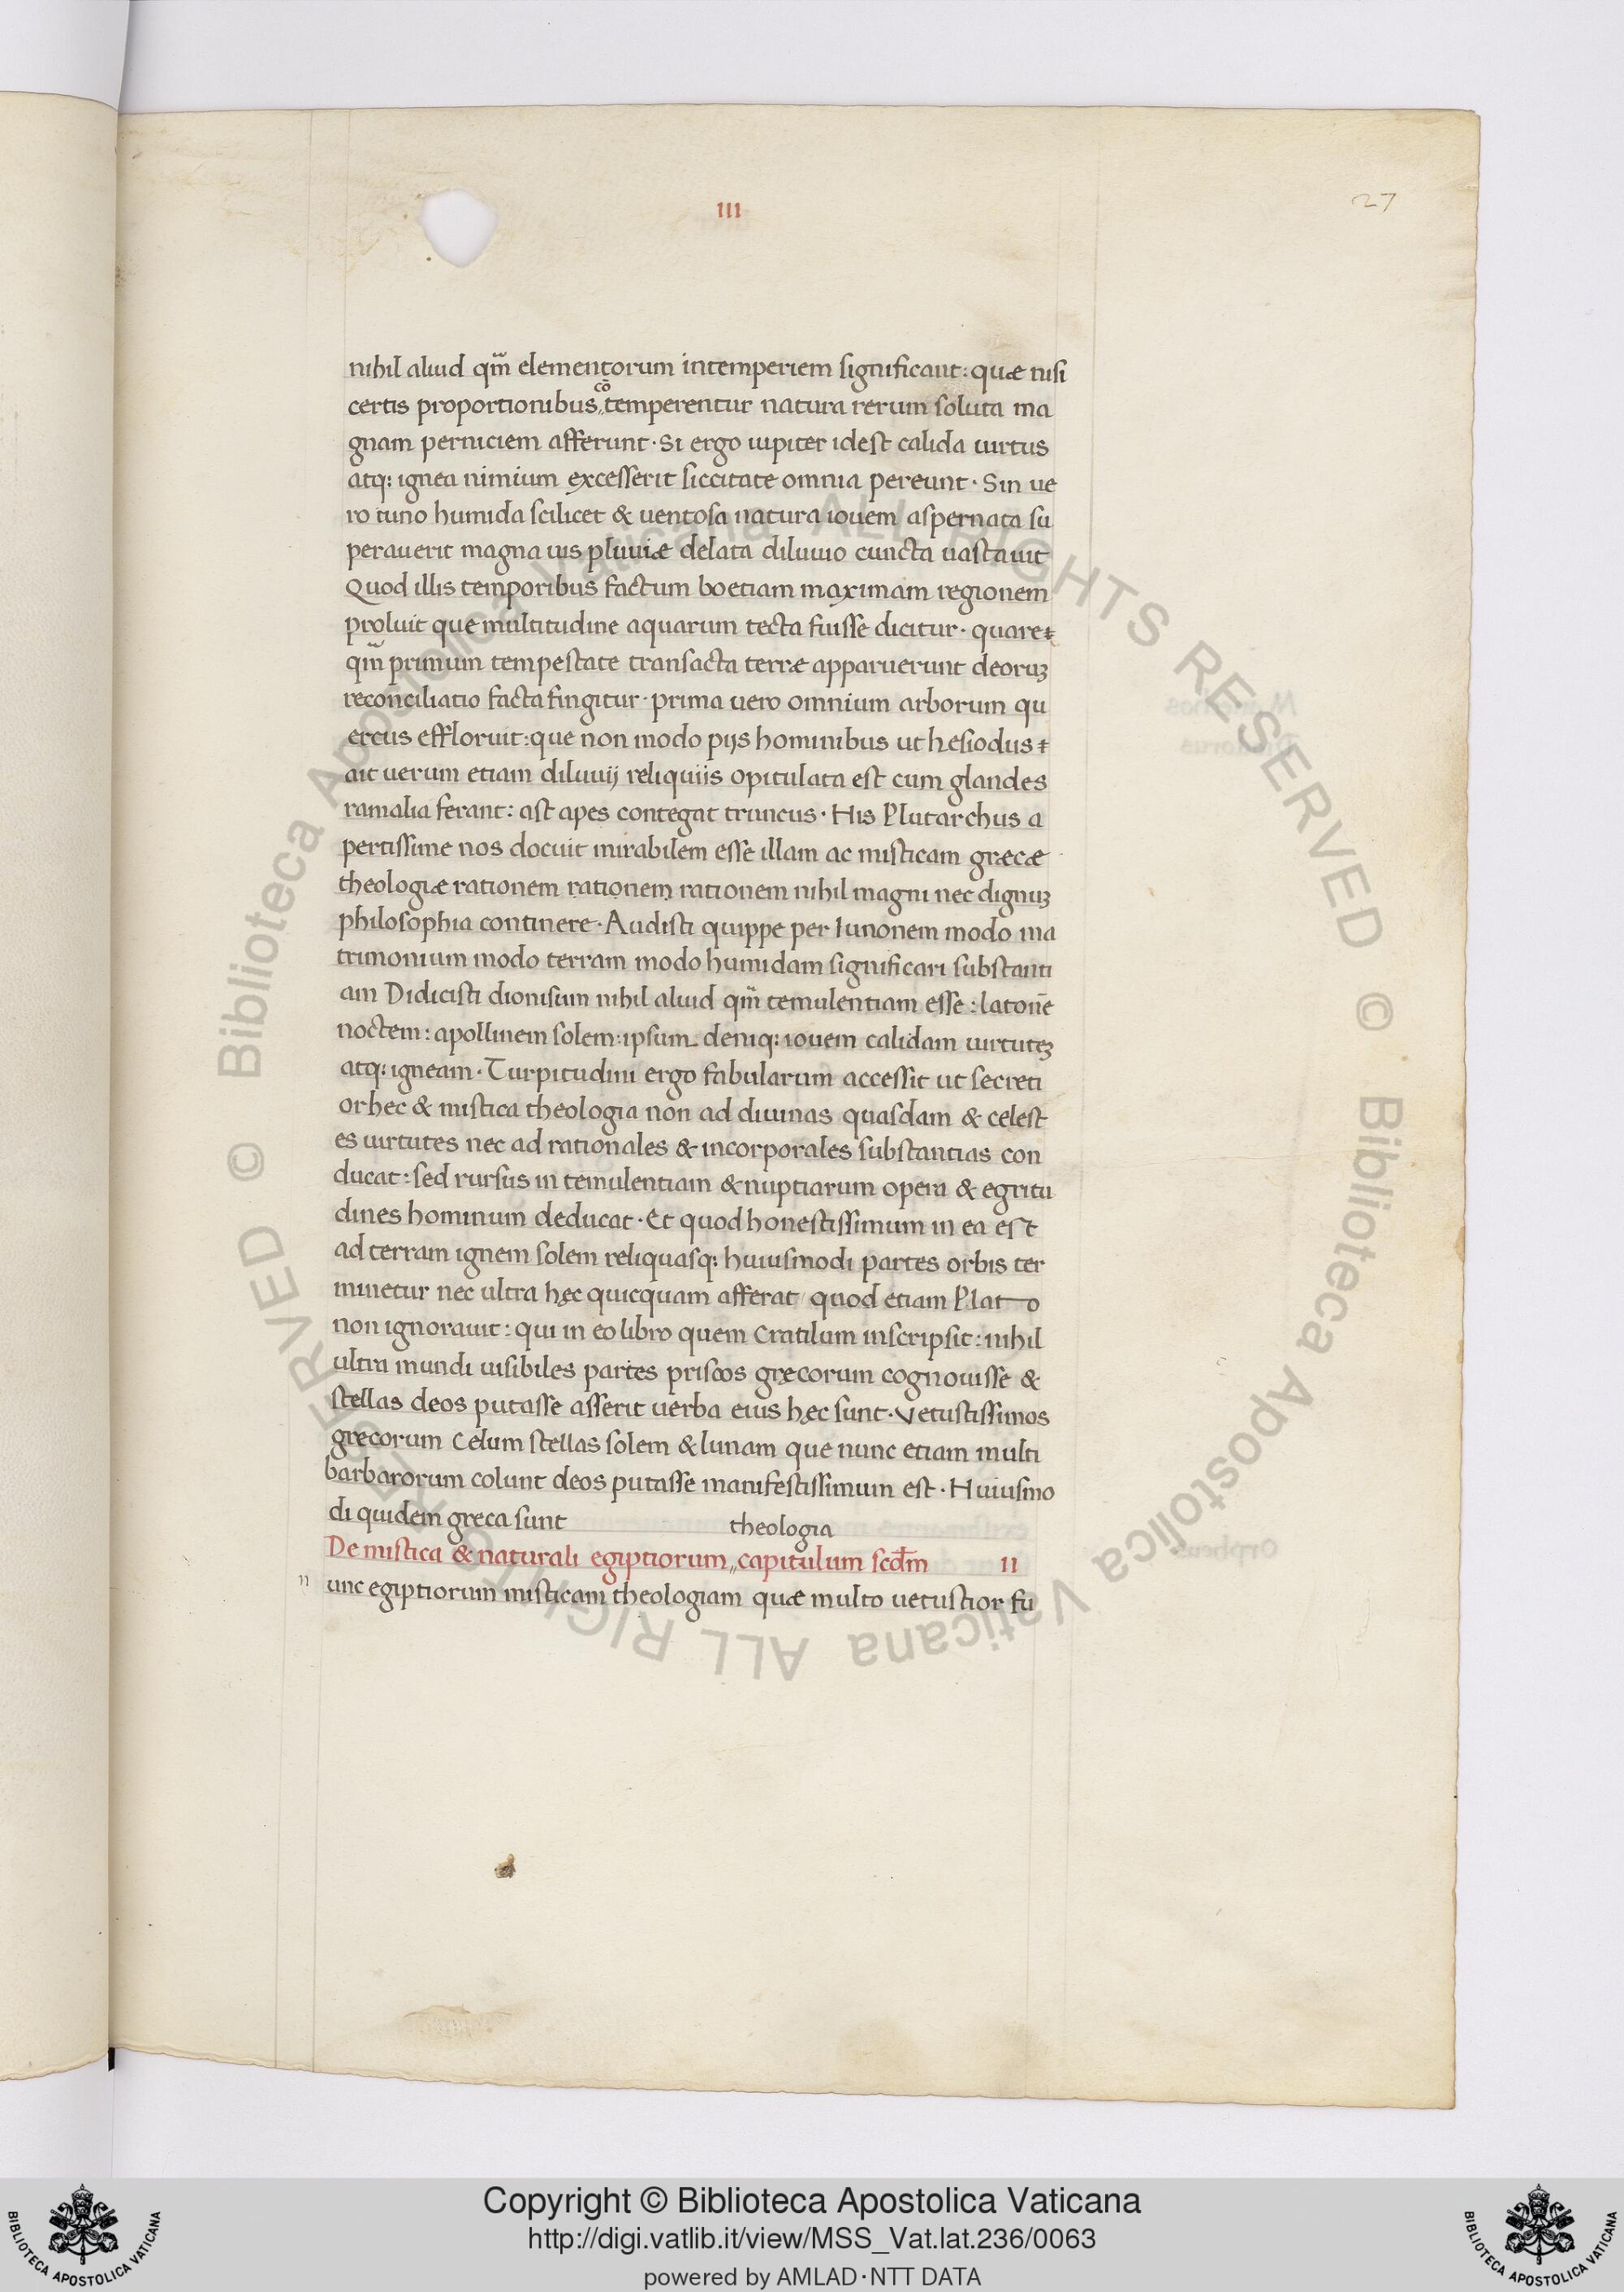 III
27
nihil aliud qm̃ elementorum intemperiem significant: quæ nisi
certis proportionibus cõtemperentur natura rerum soluta ma
gnam perniciem afferunt· Si ergo iupiter idest calida uirtus
atq: ignea nimium excesserit siccitate omnia pereunt· Sin ue
ro iuno humida scilicet & uentosa natura iouem aspernata su
perauerit magna uis pluuiæ delata diluuio cuncta uastauit
Quod illis temporibus factum boetiam maximam regionem
proluit que multitudine aquarum tecta fuisse dicitur· quare
qm̃ primum tempestate transacta terræ apparuerunt deoruꝫ
reconciliatio facta fingitur· prima uero omnium arborum qu
ercus effloruit: que non modo pijs hominibus ut hesiodus
ait uerum etiam diluuij reliquiis opitulata est cum glandes
ramalia ferant: ast apes contegat truncus· His Plutarchus a
pertissime nos docuit mirabilem esse illam ac misticam græcæ
theologiæ rationem rationem rationem nihil magni nec dignuꝫ
philosophia continere· Audisti quippe per Iunonem modo ma
trimonium modo terram modo humidam significari substanti
am Didicisti dionisum nihil aliud qm̃ temulentiam esse: latonẽ
noctem: apollinem solem: ipsum deniq: iouem calidam uirtuteꝫ
atq: igneam· Turpitudini ergo fabularum accessit ut secreti
or hec & mistica theologia non ad diuinas quasdam & celest
es uirtutes nec ad rationales & incorporales substantias con
ducat: sed rursus in temulentiam & nuptiarum opera & egritu
dines hominum deducat· Et quod honestissimum in ea est
ad terram ignem solem reliquasq: huiusmodi partes orbis ter
minetur nec ultra hęc quicquam afferat/ quod etiam Plato
non ignorauit: qui in eo libro quem Cratilum inscripsit: nihil
ultra mundi uisibiles partes priscos græcorum cognouisse &
stellas deos putasse asserit uerba eius hęc sunt· Vetustissimos
grecorum Celum stellas solem & lunam que nunc etiam multi
barbarorum colunt deos putasse manifestissimum est· Huiusmo
di quidem greca sunt theologia
De mistica & naturali egiptiorum,, capitulum scd̃m II
n unc egiptiorum misticam theologiam quæ multo uetustior fu
© Biblioteca Apostolica Vaticana ALL RIGHTS RESERVED © Biblioteca Apostolica Vaticana ALL RIGHTS RESERVED
Copyright © Biblioteca Apostolica Vaticana
http://digi.vatlib.it/view/MSS_Vat.lat.236/0063
powered by AMLAD·NTT DATA
BIBLIOTECA APOSTOLICA VATICANA
BIBLIOTECA APOSTOLICA VATICANA